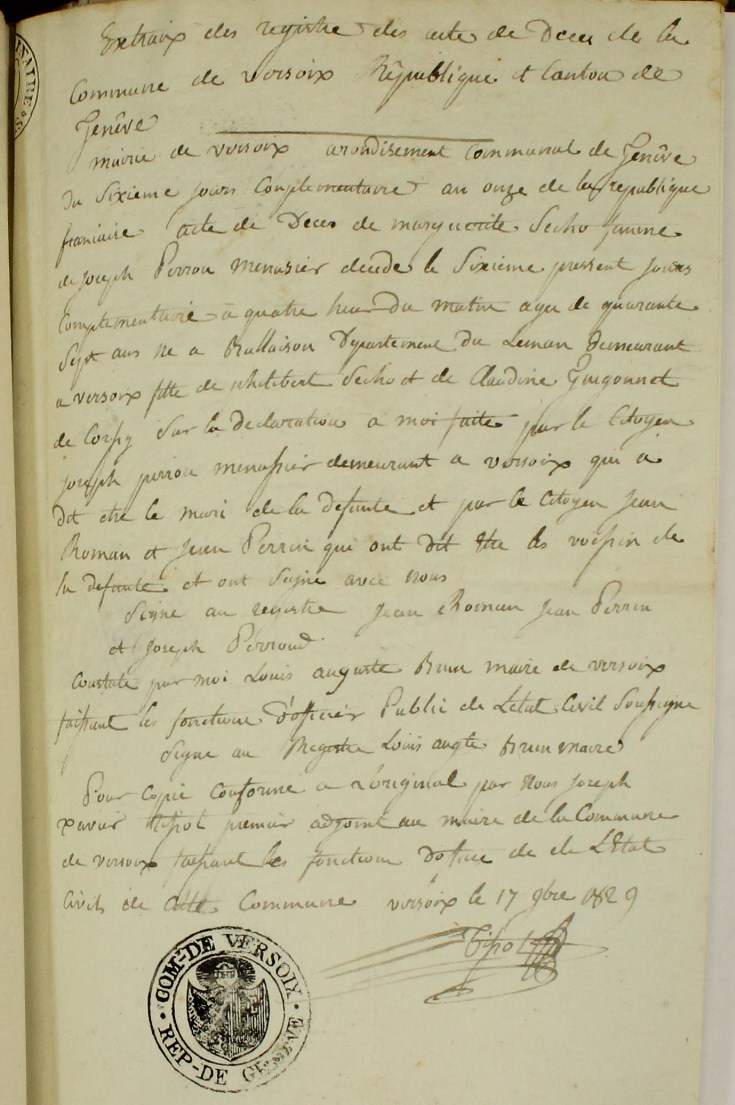 Extraix des registre des acte de Deces de la
Commune de versoix République et Canton de
Genêve
mairie de versoix arondisement communal de Genêve
Du Sixieme jours Complementaire an onze de la republique
francaise acte de Deces de marguerite Secho famme
de Joseph Perrou menusier decede le Sixieme present Jours
Complementaire a quatre heur du matin agee de quarante
Sept ans ne a Ballaison Departement du Leman demeurant
a versoix fille de philibert Secho et de Claudine Guigonnet
de Corsy Sur la Declaration a moi faite par le Citoyen
joseph perrou menussier demeurant a versoix qui a
dit etre le mari de la defunte et par le Citoyen Jean
Roman et Jean Perrin qui ont dit etre les voissin de
la defunte et ont Signe avec nous
Signe au registre Jean Roman Jean Perrin
et Joseph Perroud
Constate par moi Louis auguste Brun maire de versoix
faissant les fonction d'officier Public de L'etat Civil Soussigne
Signe au Registre Louis augte Brun maire
Pour Copie Conforme a L'original par Nous joseph
xavier premier adjoint au maire de la Commune
de versoix faissant les fonction de de L'Etat
Civil de dite Commune versoix le 17 9bre 1829
COM-DE VERSOIX
REP-DE GENEVE